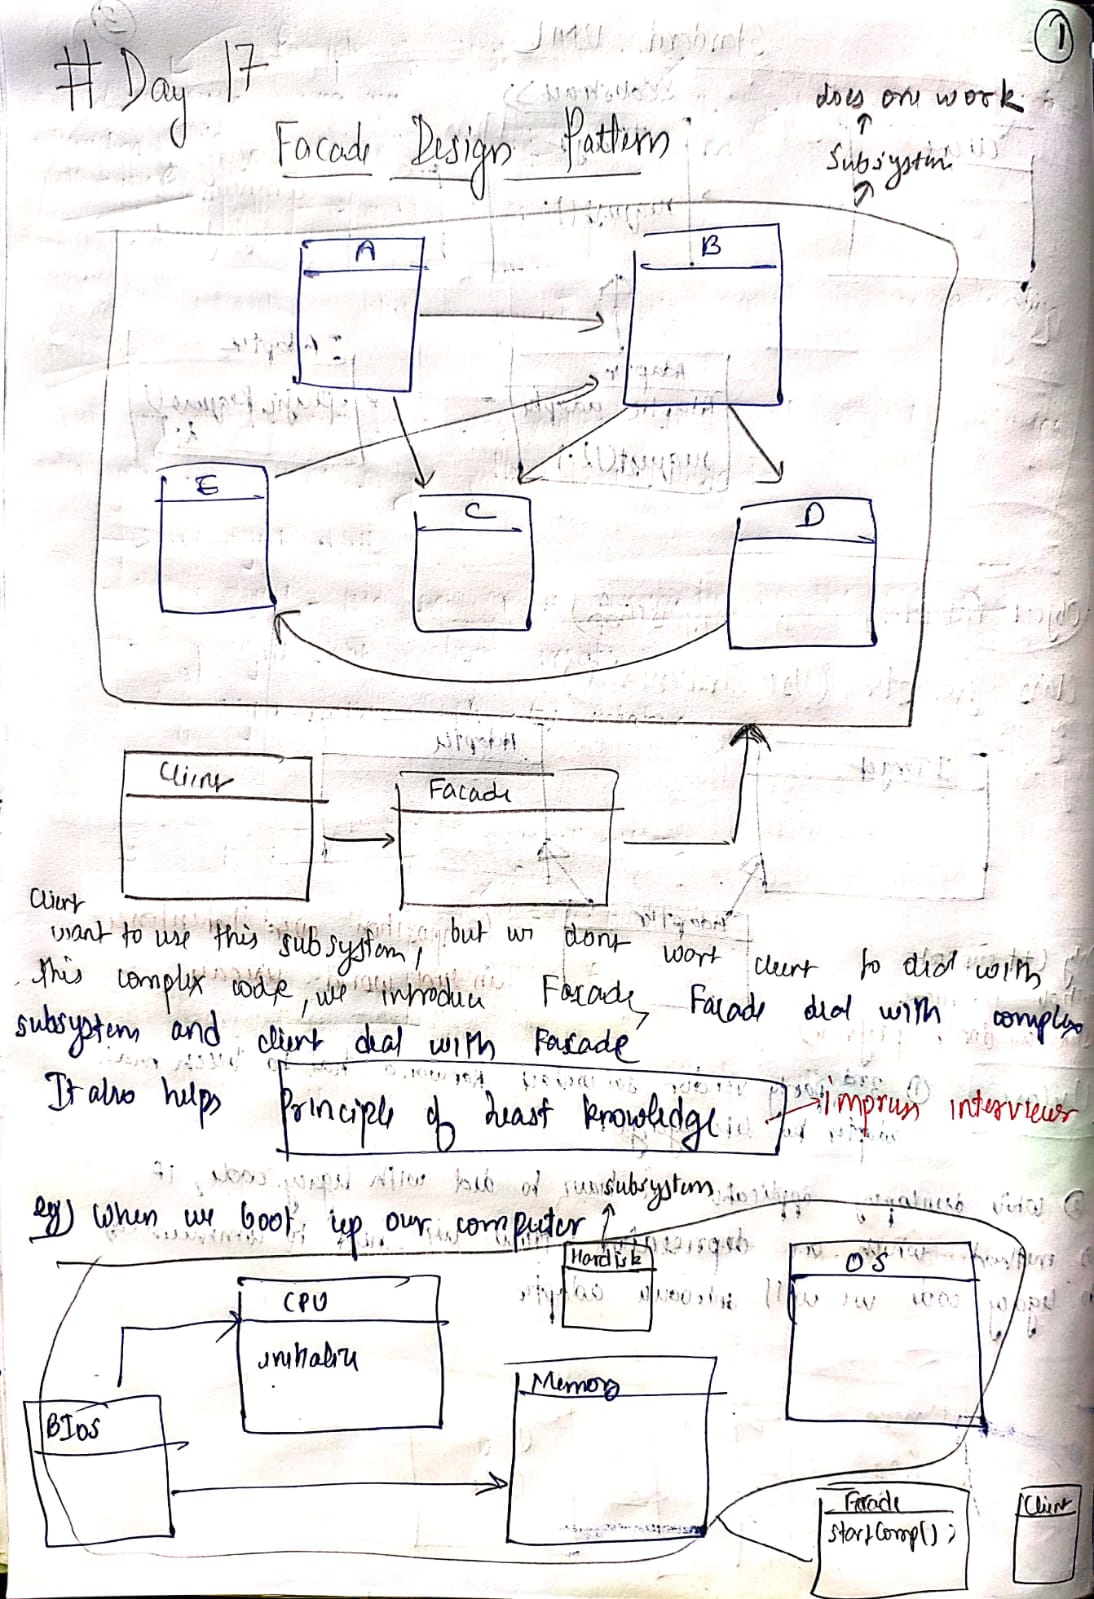 1
# Day 17
Facade Design Pattern
does one work
Subsystem
A
B
E
C
D
Client
Facade
Client
want to use this subsystem, but we dont want client to deal with
this complex code, we introduce Facade, Facade deal with complex
subsystem and client deal with Facade
It also helps Principle of least knowledge impress interviewer
eg) When we boot up our computer
subsystem
Hardisk
OS
CPU
initialize
Memory
BIOS
Facade
startComp();
Client